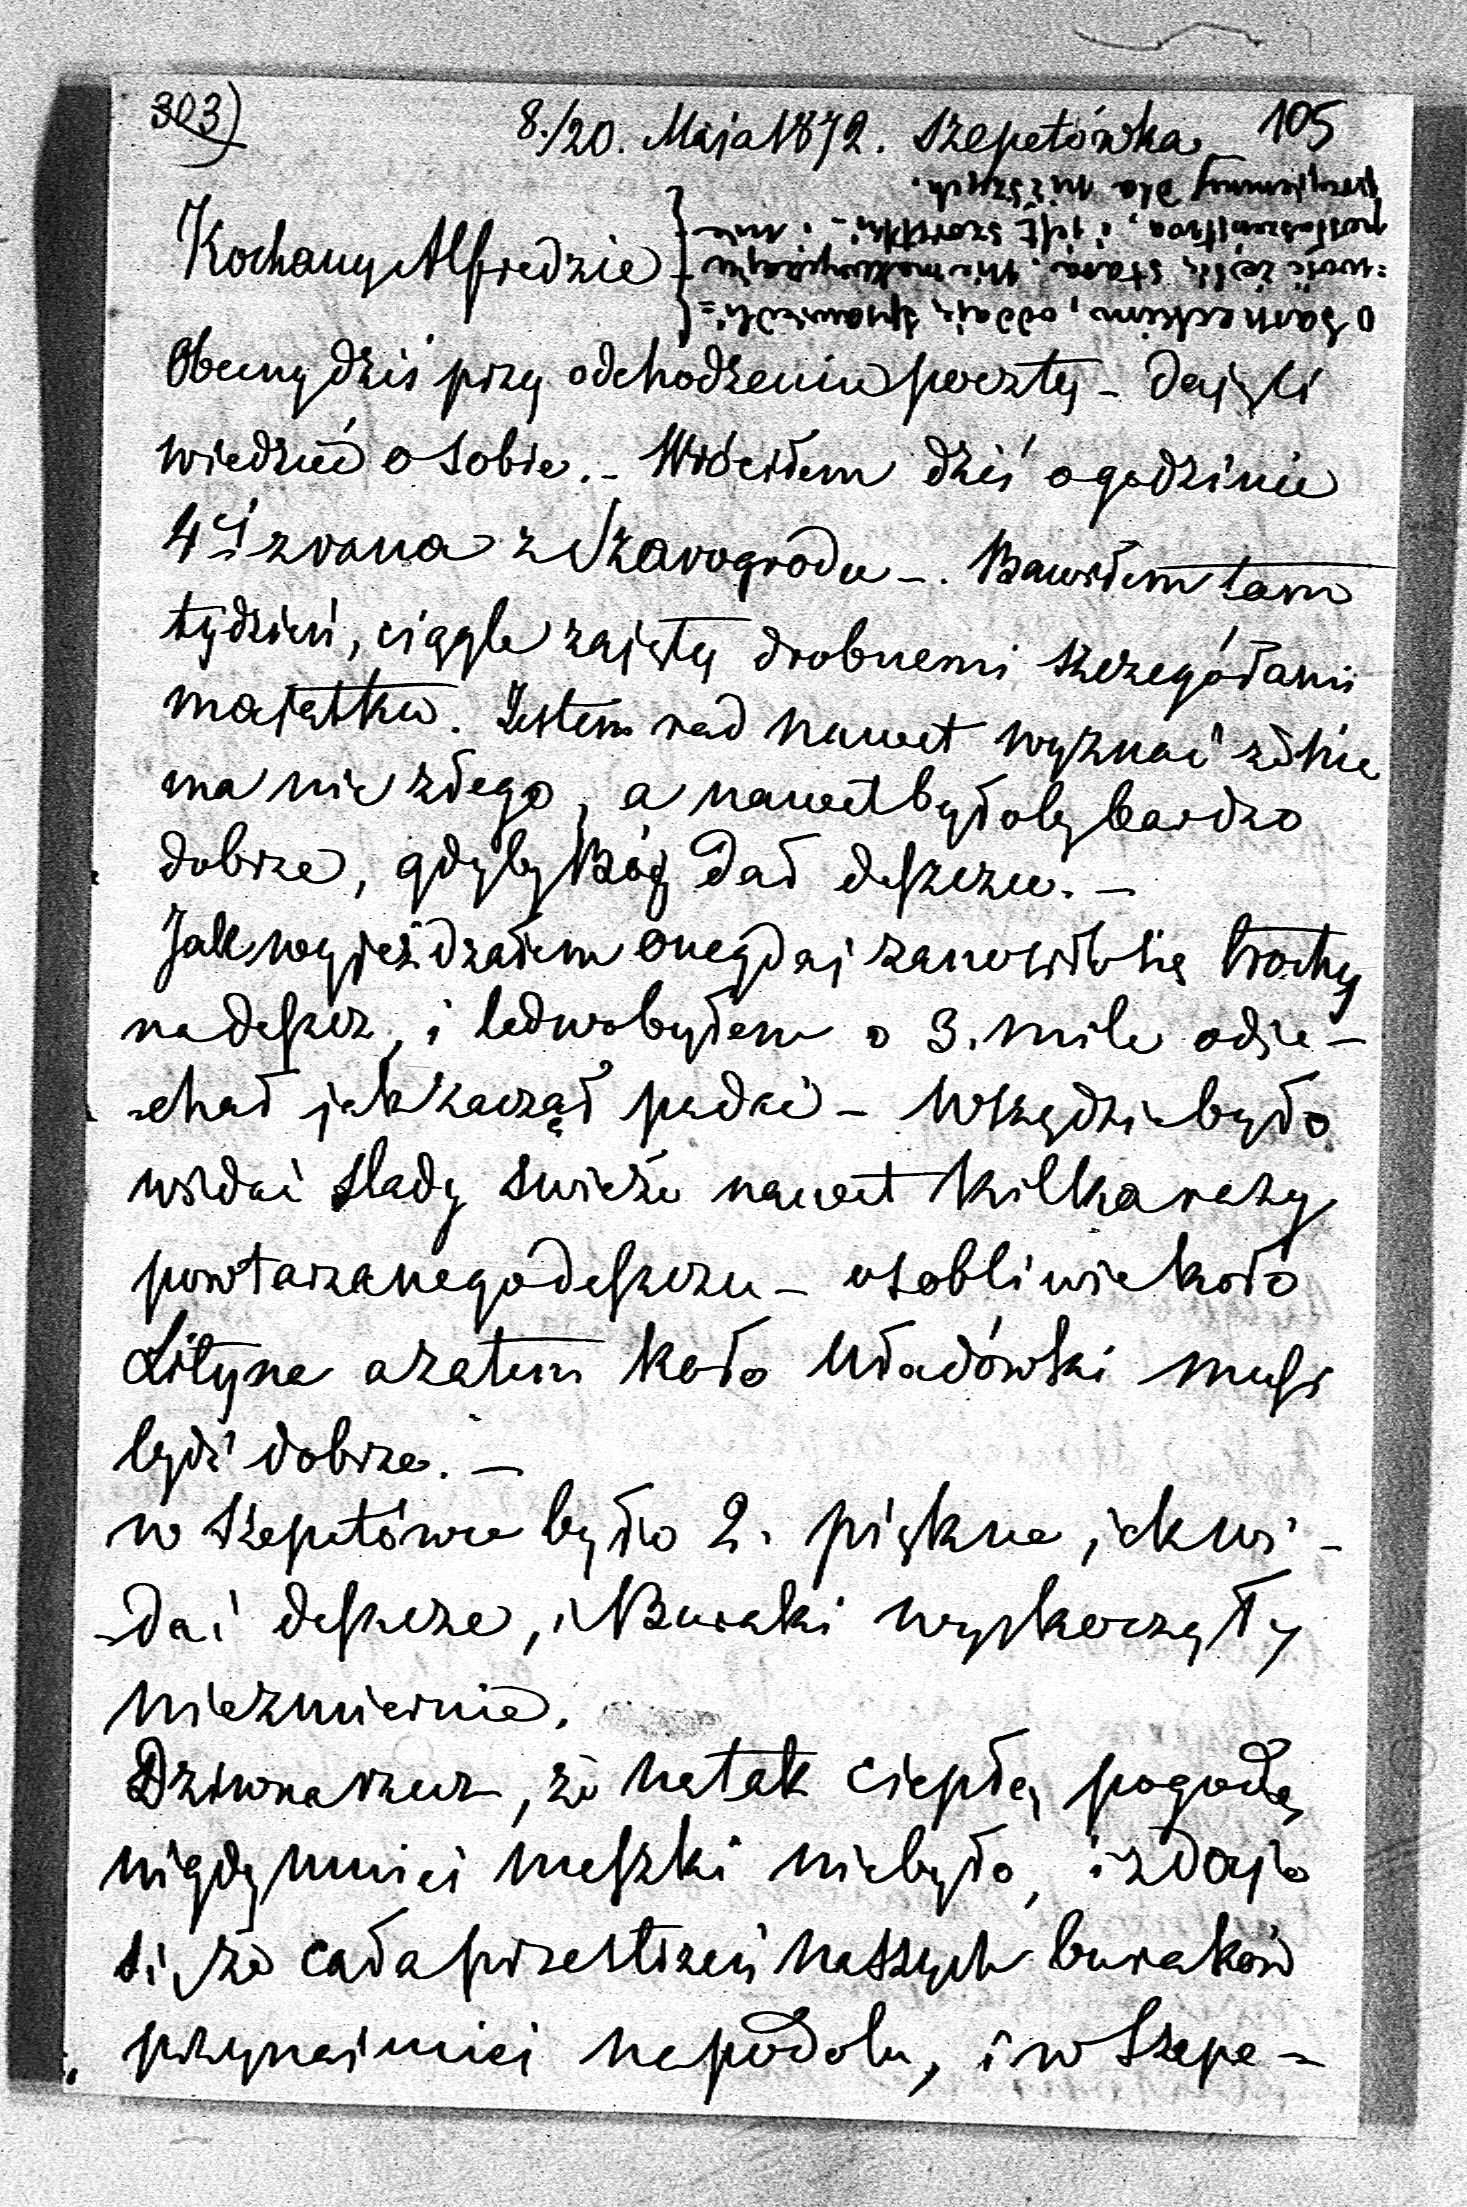 303)
8./20. Maja 1872. Szepetówka 105
Kochany Alfredzie
O Sarneckim, oddaję sprawiedli=
=wość że się stara, nie ma
posłuszeństwa, i jest szorstki - i nie
przyjemny dla niższych.
Obecny dziś przy odchodzeniu poczty - daję Ci
wiedzieć o sobie. - Wróciłem dziś o godzinie
4ej z rana z Szarogrodu -. Bawiłem tam
tydzień, ciągle zajęty drobnemi szczegółami
majątku. Jestem rad nawet wyznać że nie
ma nic złego, a nawet byłoby bardzo
dobrze, gdyby Bóg dał deszczu. -
Jak wyjeżdżałem onegdaj zanosiło się trochę
na deszcz, i ledwo byłem o 3. mile odje-
-chał jak zaczął padać - wszędzie było
widać ślady świeże nawet kilka razy
powtarzanego deszczu - osobliwie koło
Lityna a zatem koło Uładówki musi
bydź dobrze. -
w Szepetówce było 2. piękne jak wi-
-dać deszcze, i Buraki wyskoczyły
niezmiernie.
Dziwna rzecz, że na tak ciepłą pogodę
nigdy mniej muszki nie było, i zdaje
się że cała przestrzeń naszych buraków
przynajmniej na podolu, i w Szepe-